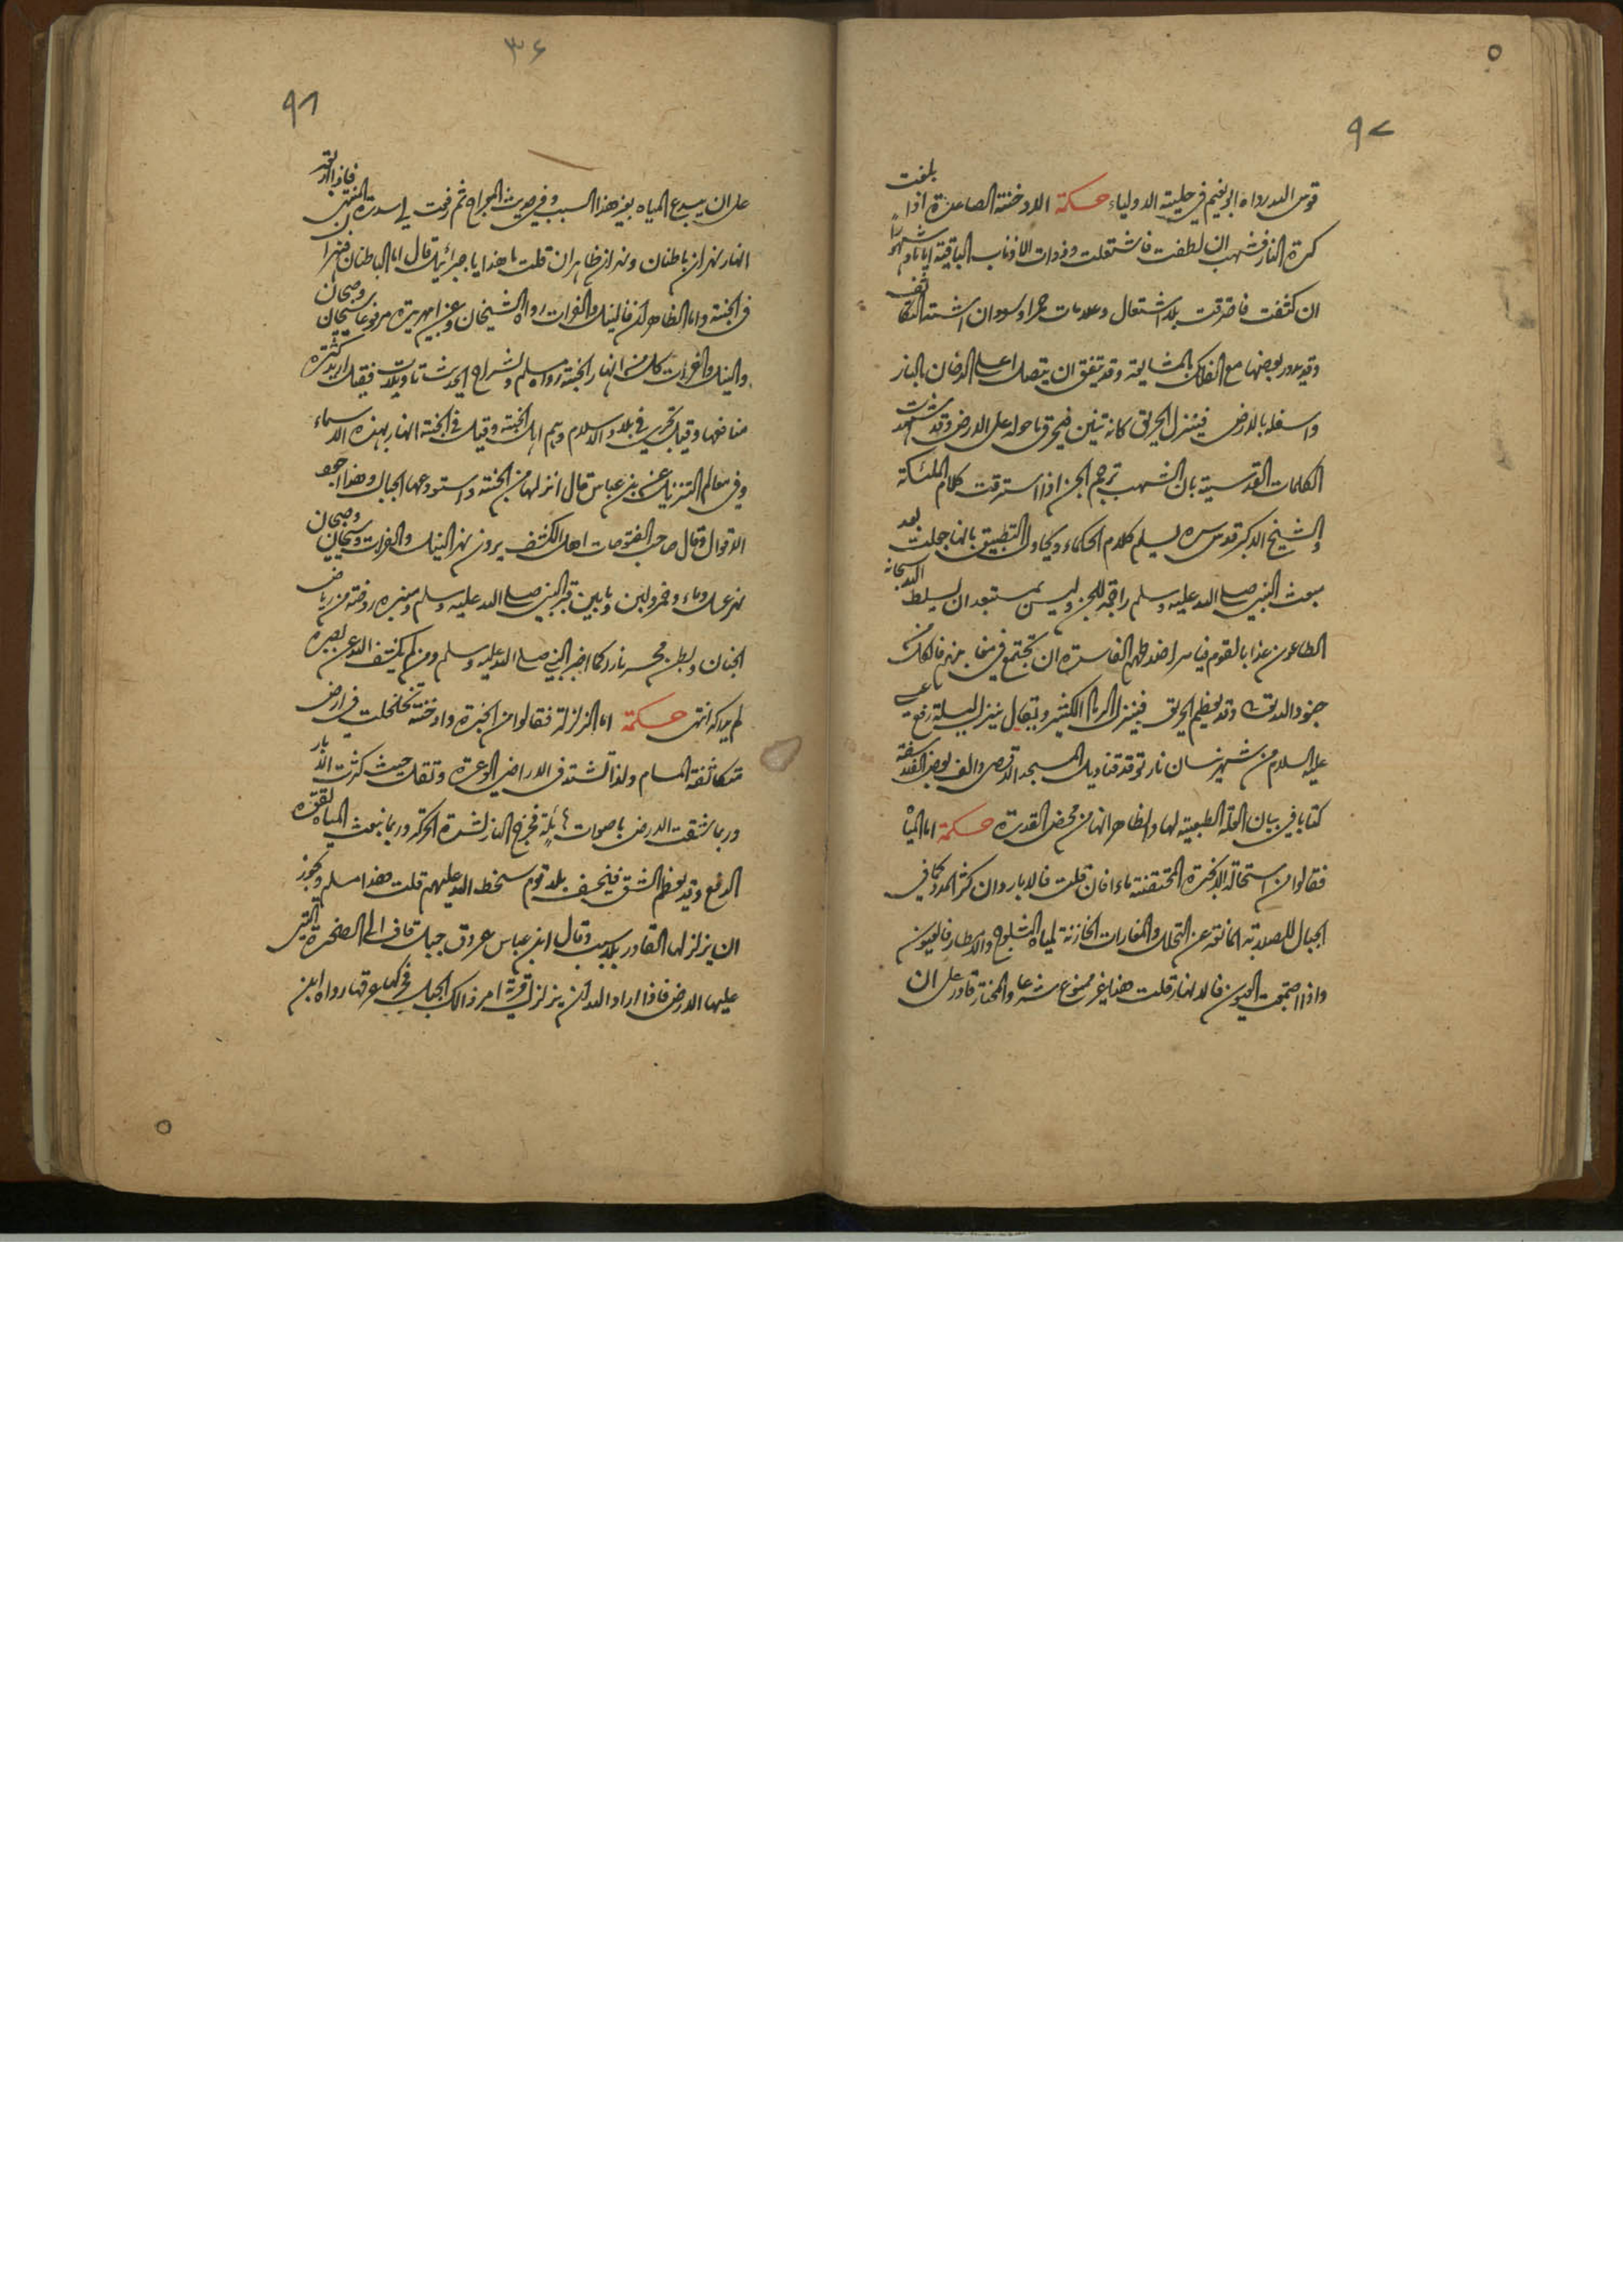 ٩٧
قوس الله رواه ابو نعيم في حلية الاولياء حكمة الادخنة الصاعدة اذا بلغت
كرة النار فشهب ان لطفت فاشتعلت وذوات الاذناب الباقية اياما وشهورا
ان كثفت فاحترقت بلا اشتعال وعلامات حمر او سود ان اشتد التكاثف
وقد يدور بعضها مع الفلك بالمشايعة وقد يتفق ان يتصل اعلى الدخان بالنار
واسفله بالارض فينزل الحريق كانه تنين فيحرق ما حوله على الارض وقد
الكلمات القدسية بان الشهب ترجم الجن اذا استرقت كلام الملئكة
والشيخ الاكبر قدس سره يسلم كلام الحكماء ويحاول التطبيق بانها جعلت بعد
مبعث النبي صلى الله عليه وسلم راجمة للجن وليس بمستبعد ان يسلط الله سبحانه
الطاعون عذابا لقوم فيامر ان تجتمع في
جنود الله تعالى وقد يعظم الحريق فينزل الكثير ويقال ينزل ليلة رفع
عليه السلام من شهر نيسان نار توقد قناديل المسجد الاقصى والف بعض الفلاسفة
كتابا في بيان العلة الطبيعية لها والظاهر انها من محض القدرة حكمة اما المياه
فقالوا من استحالة الابخرة المحتقنة ماء فان قلت فالابار وان كثر المدد كما في
الجبال للصلابة المانعة عن التحلل والمغارات الخازنة لمياه الثلوج والامطار فالعيون
واذا اجتمعت العيون فالانهار قلت هذا غير ممنوع شرعا والمختار قادر على ان
٣٦
٩٨
على ان يبدع المياه بغير هذا السبب وفي حديث المعراج ثم رفعت لي سدرة المنتهى فاذا اربعة
انهار نهران باطنان ونهران ظاهران قلت ما هذا يا جبرئيل قال اما الباطنان فنهران
في الجنة واما الظاهران فالنيل والفرات رواه الشيخان وعن ابي هريرة مرفوعا سيحان وجيحان
والنيل والفرات كل من انهار الجنة رواه مسلم ولشراح الحديث تاويلات فقيل اريد كثرة
منافعها وقيل تجري في بلاد الاسلام وهم اهل الجنة وقيل في الجنة انهار بهذه الاسماء
وفي معالم التنزيل عن ابن عباس قال انزلها من الجنة واستودعها الجبال وهذا اجود
الاقوال وقال صاحب الفتوحات اهل الكشف يرون نهر النيل والفرات وسيحان وجيحان
نهر عسل وماء وخمر ولبن وما بين قبر النبي صلى الله عليه وسلم ومنبره روضة من رياض
الجنان وبطن محسر نار كما اخبر النبي صلى الله عليه وسلم ومن لم يكشف الله عن بصيره
لم يدركه انتهى حكمة اما الزلزلة فقالوا من ابخرة وادخنة تخلخلت في ارض
متكاثفة المسام ولذا تشتد في الاراضي الوعرة وتقل حيث كثرت الابار
وربما شقت الارض باصوات هائلة فتخرج النار لشدة الحركة وربما نبعت المياه لقوة
الدفع وقد يعظم الشق فينخسف بلد قوم سخط الله عليهم قلت هذا مسلم ويجوز
ان يزلزلها القادر بلا سبب وقال ابن عباس عروق جبل قاف الى الصخرة التي
عليها الارض فاذا اراد الله ان يزلزل قرية امر ذالك الجبل فحرك عرقها رواه ابن